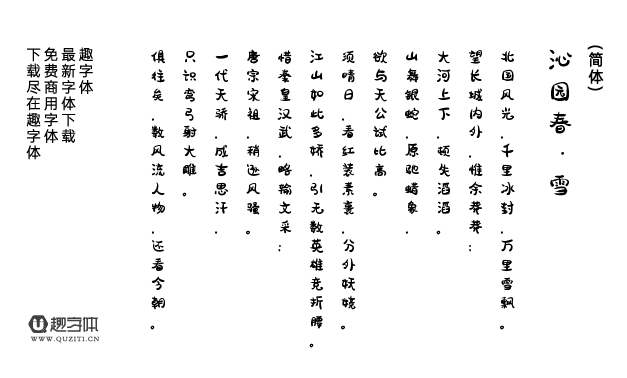 (简体)
沁园春.雪
北国风光,千里冰封,万里雪飘。
望长城内外,惟余莽莽;
大河上下,顿失滔滔。
山舞银蛇,原驰蜡象,
欲与天公试比高。
须晴日,看红装素裹,分外妖娆。
江山如此多娇,引无数英雄竞折腰。
惜秦皇汉武,略输文采;
唐宗宋祖,稍逊风骚。
一代天骄,成吉思汗,
只识弯弓射大雕。
俱往矣,数风流人物,还看今朝。
趣字体
最新字体下载
免费商用字体
下载尽在趣字体
趣字体
WWW.QUZITI.CN